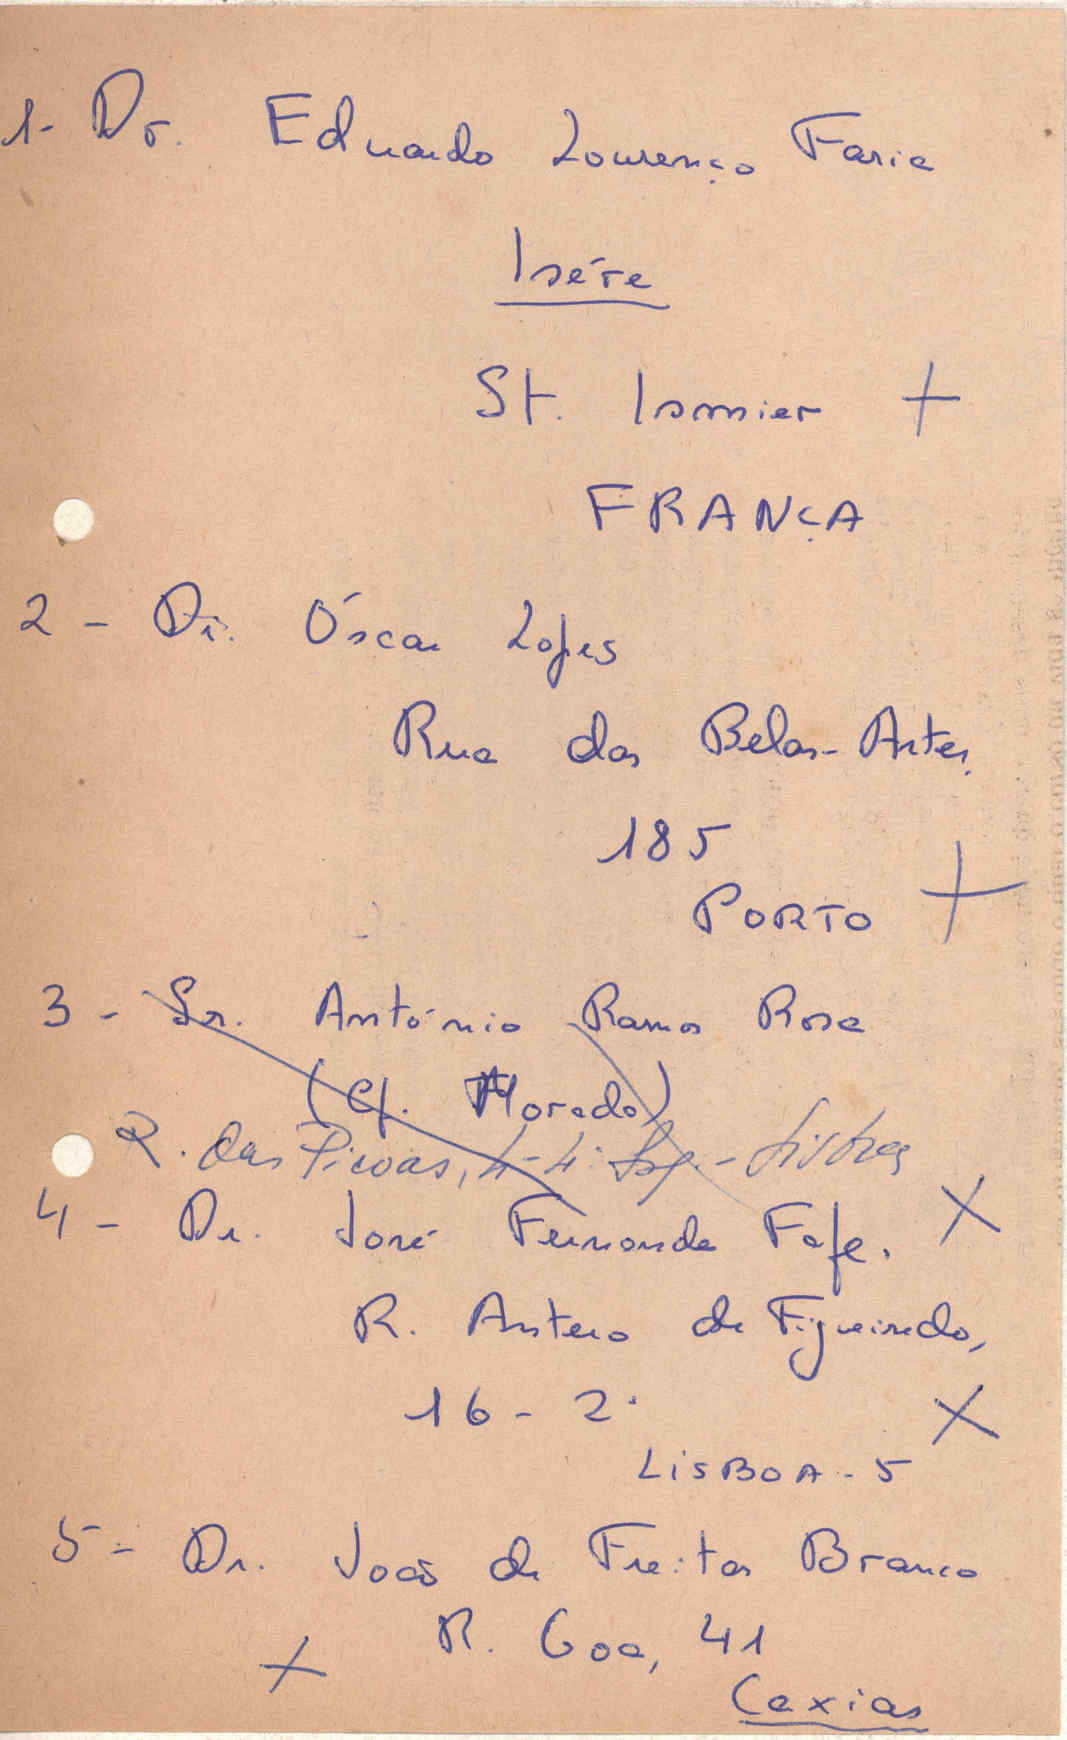 1- Dr. Eduardo Lourenço Faria
Isére
St. Ismier +
FRANÇA
2 - Dr. Óscar Lopes
Rua das Belas-Artes,
185
PORTO +
3 - Sr. António Ramos Rosa
(Cf. Morada)
R. das Picoas, 4-4º - Lisboa
4 - Dr. José Fernandes Fafe. X
R. Antero de Figueiredo,
16 - 2º X
LISBOA - 5
5 - Dr. João de Freitas Branco
R. Goa, 41
X
Caxias